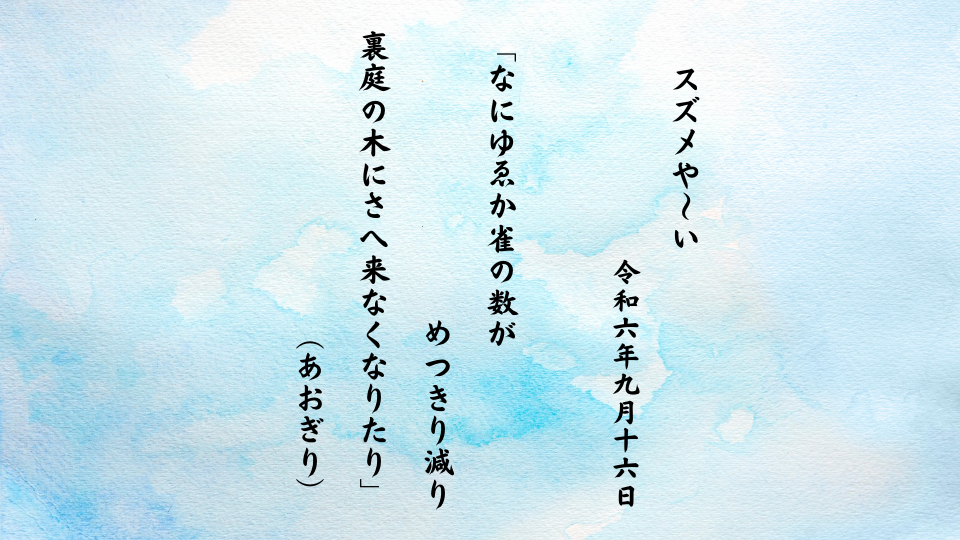 スズメや～い
令和六年九月十六日
「なにゆゑか雀の数が
めつきり減り
裏庭の木にさへ来なくなりたり」
（あおぎり）